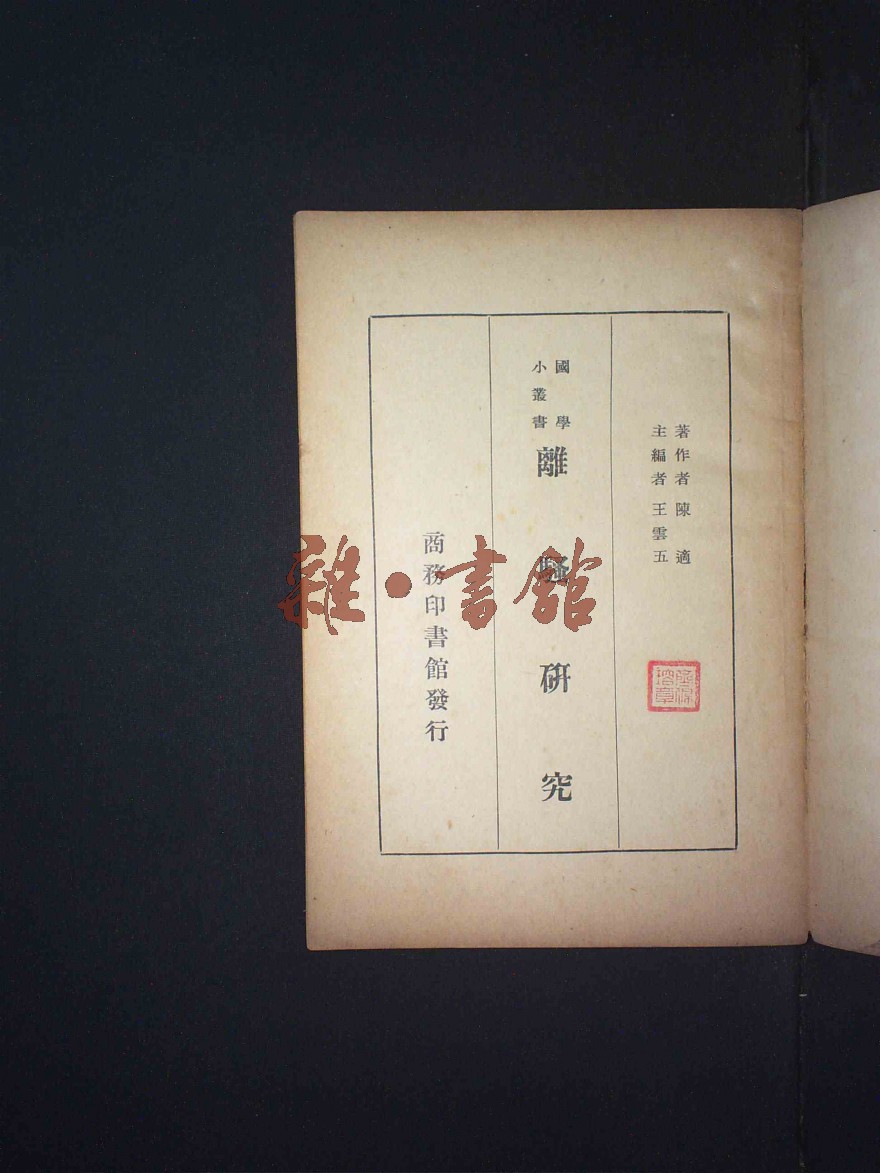 著作者陳適
主編者王雲五
國學
小叢書
離騷研究
商務印書館發行
雜·書館